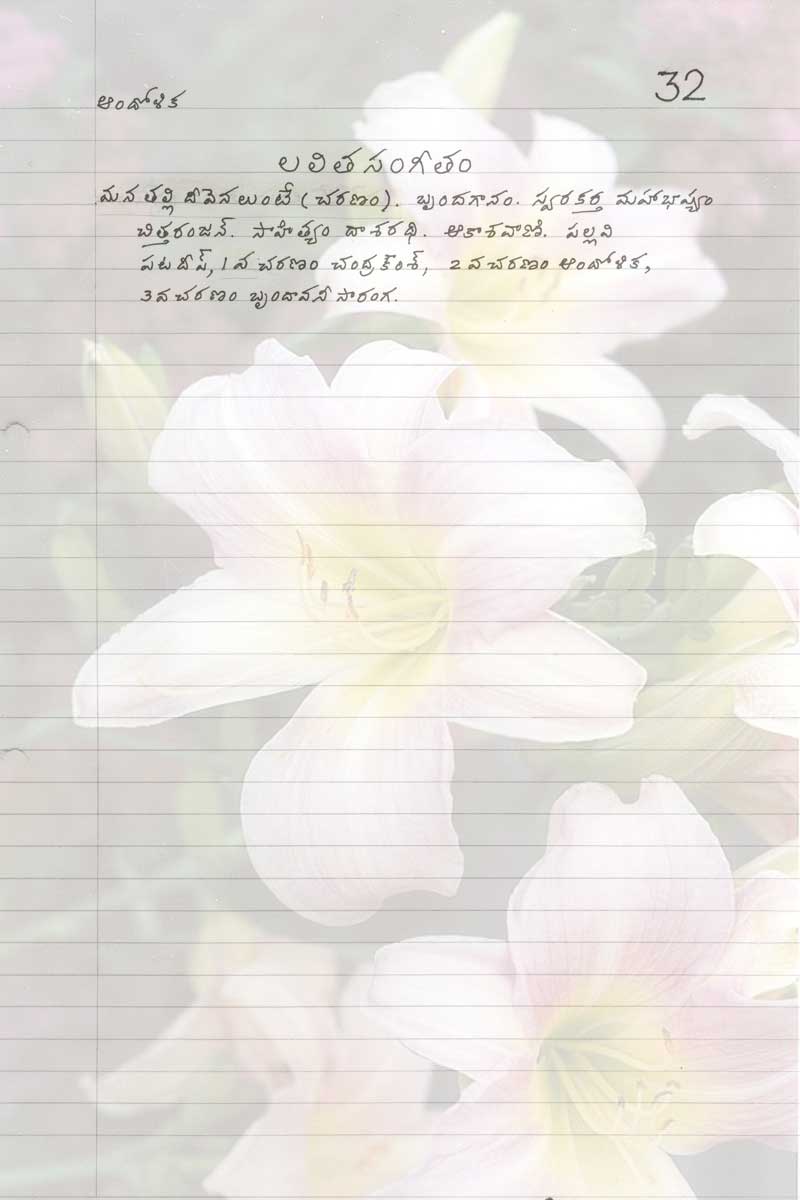 ఆందోళిక
32
లలిత సంగీతం
మన తల్లి దీవెనలుంటే (చరణం). బృందగానం. స్వరకర్త మహాభాష్యం
చిత్తరంజన్. సాహిత్యం దాశరథి. ఆకాశవాణి. పల్లవి
పటదీప్, 1వ చరణం చంద్రకౌంశ్, 2వ చరణం ఆందోళిక,
3వ చరణం బృందావనీ సారంగ.